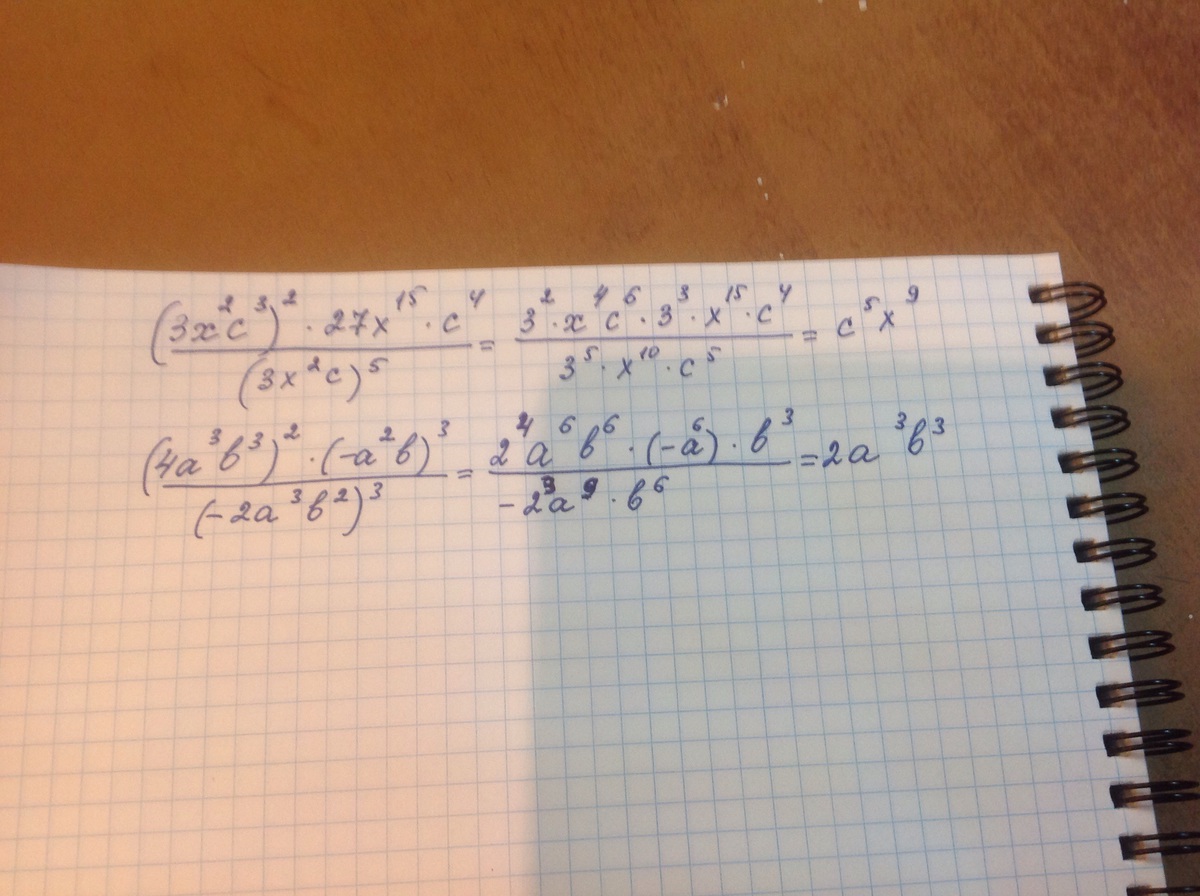 (3x²c³)² · 27x¹⁵ · c⁴ / (3x²c)⁵ = 3² · x⁴c⁶ · 3³ · x¹⁵ · c⁴ / 3⁵ · x¹⁰ · c⁵ = c⁵x⁹
(4a³b³)² · (-a²b)³ / (-2a³b²)³ = 2⁴a⁶b⁶ · (-a⁶) · b³ / -2³a⁹ · b⁶ = 2a³b³